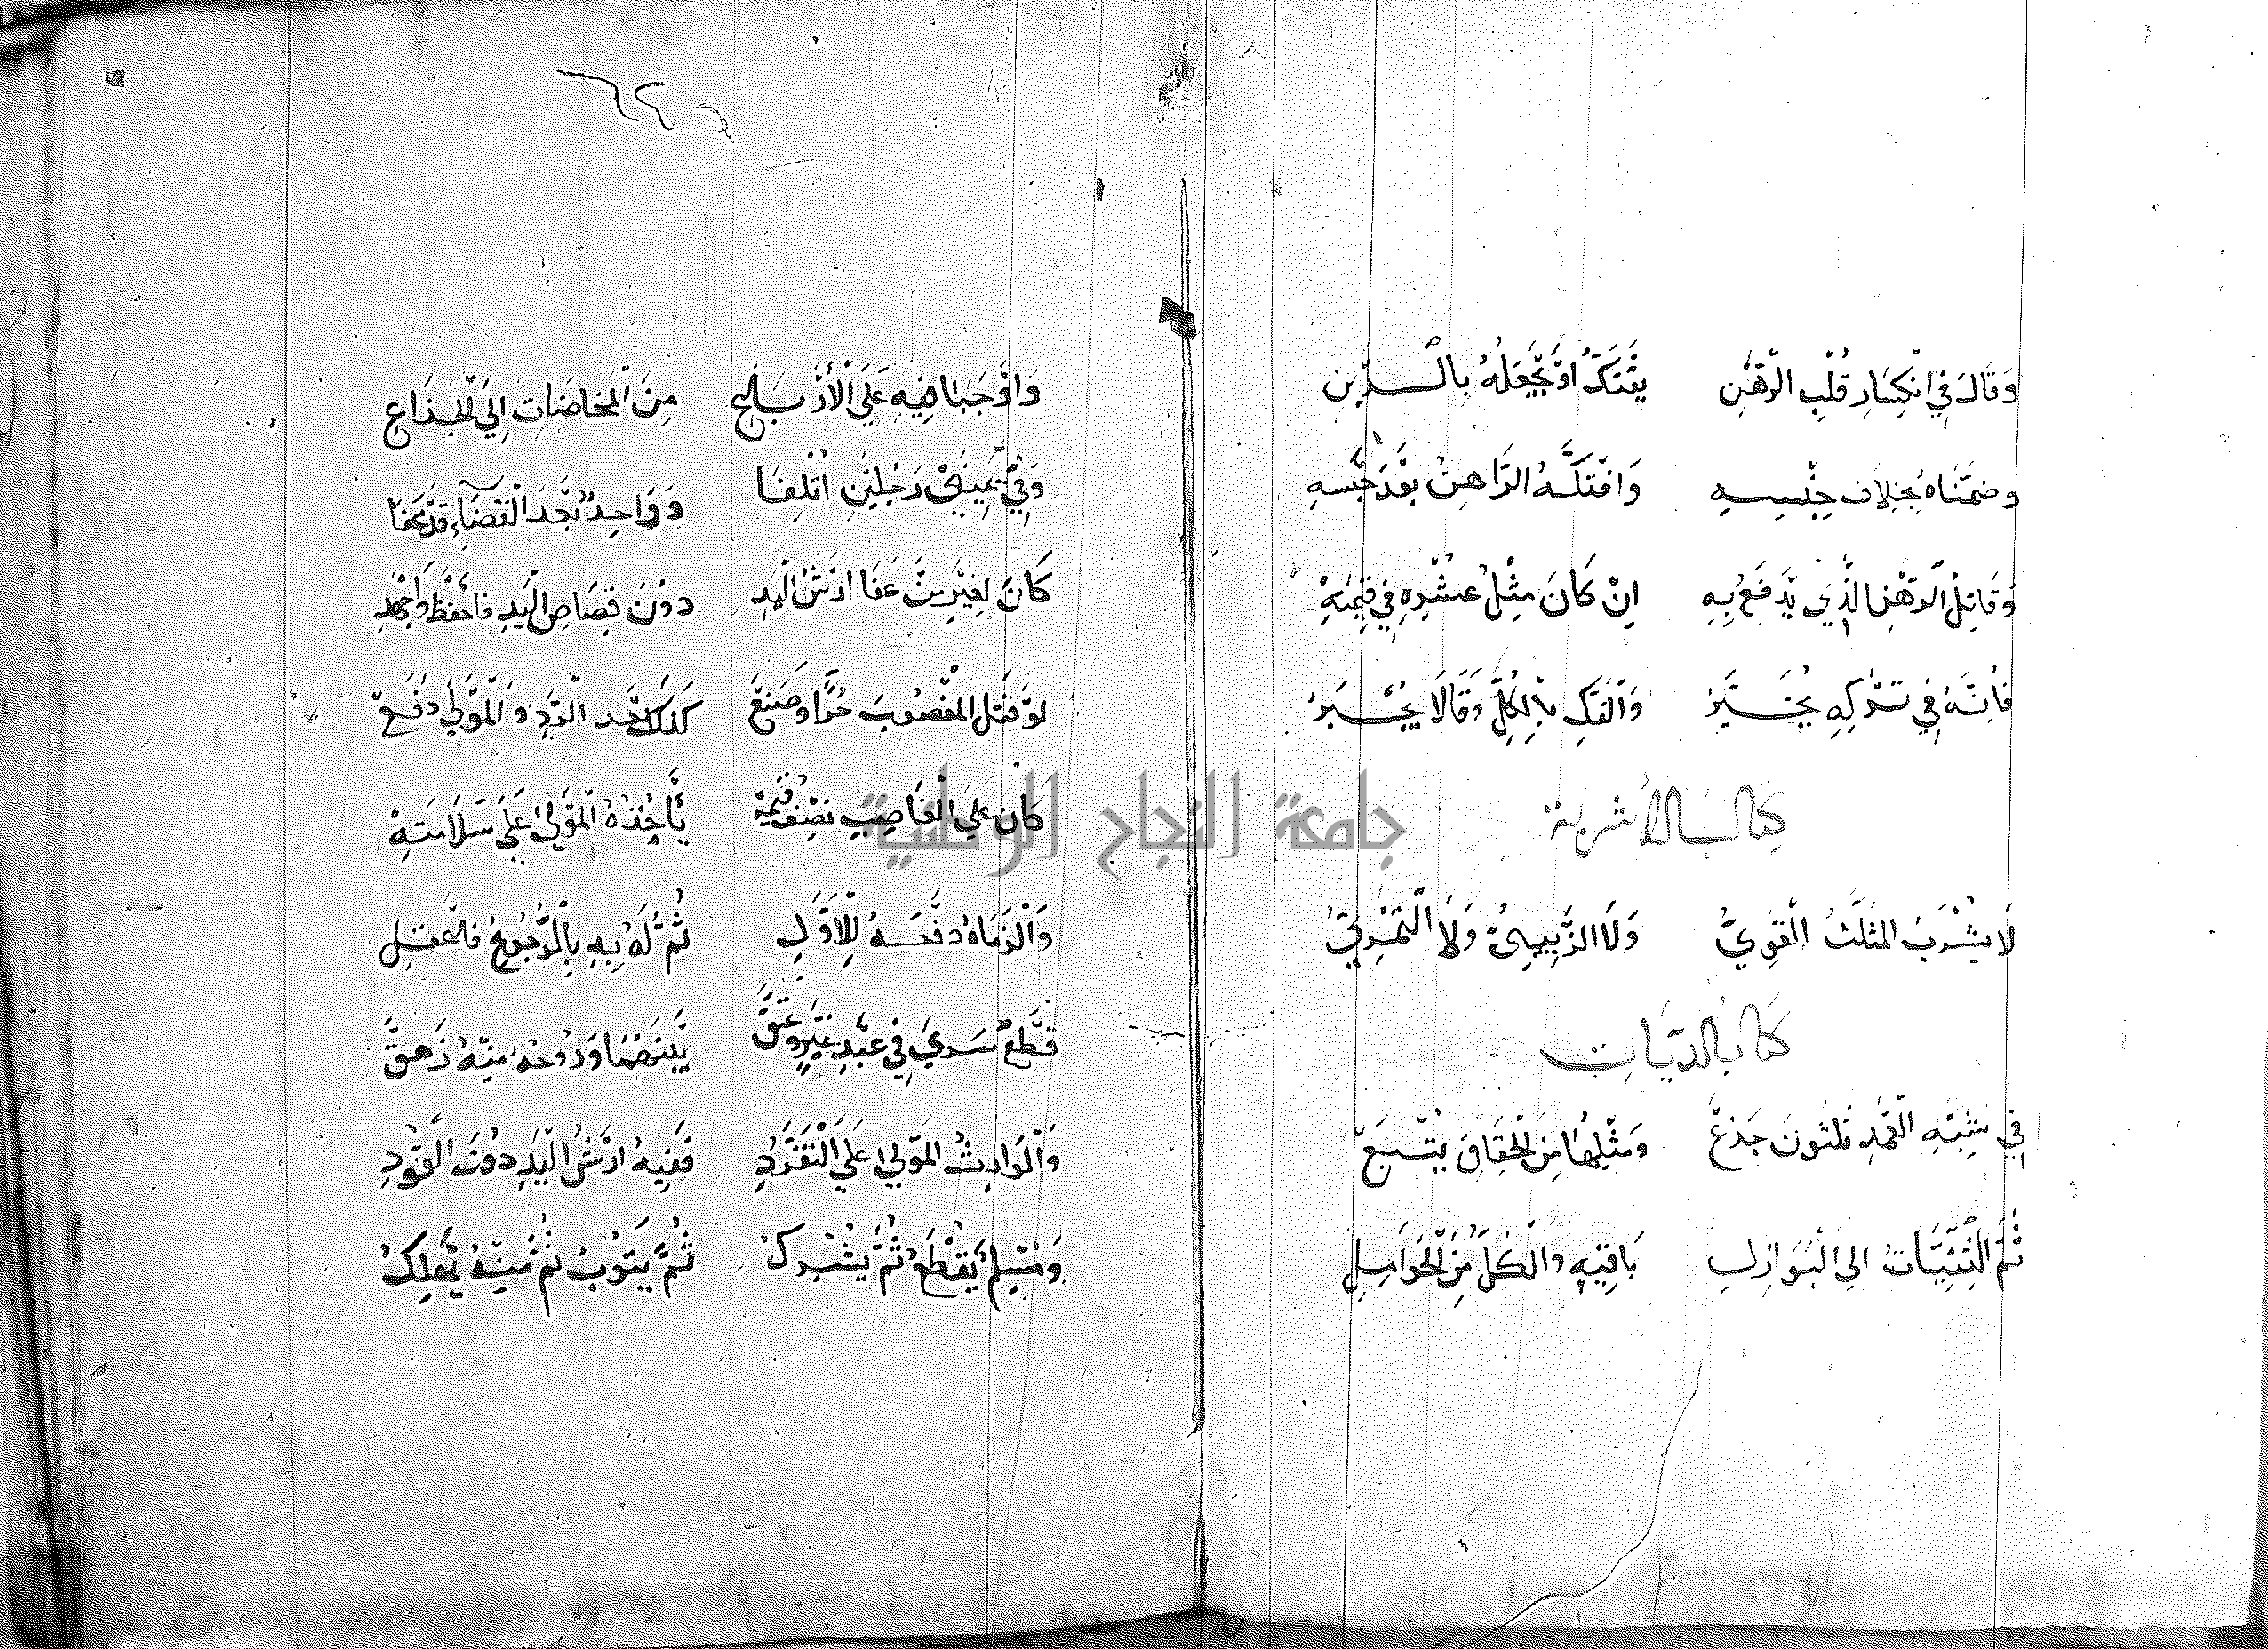 وَقَالَ فِي انْكِسَارِ قُلْبِ الرَّهْنِ يَفْتَكُّ اَوْ يَجْعَلُهُ بِالدَّيْنِ
وضمّناه بخلاف جنسه وَافْتَكَّهُ الرَّاهِنُ بَعْدَ حَبْسِه
وَقَاتِلُ الرَّهْنِ الَّذِي يُدْفَعُ بِهِ اِنْ كَانَ مِثْلَ عُشْرِهِ فِي قِيمَتِهْ
فَاِنَّهُ فِي تَرْكِهِ يُخَيَّرُ وَالْفَكِّ بِالكُلِّ وَقَالَا يُجْبَرُ
كتاب الأشربة
لَا يُشْرَبُ المثَلَّثُ الْقَوِيُّ وَلَا الزَّبِيبِيُّ وَلَا التَّمْرِيُّ
كتاب الديات
فِي شِبْهِ الْعَمْدِ ثَلثُونَ جَذَعْ وَمِثْلُهَا مِنَ الْحِقَاقِ يُتَّبَعْ
ثُمَّ الثَّنِيَّاتُ اِلى الْبَوَازِلِ بَاقِيهِ وَالْكُلُّ مِنَ الْحَوَامِلِ
٦٢
وَاَوْجَبَا فِيهِ عَلَى الْأَرْبَاعِ مِنَ الْمَخَاضَاتِ اِلَى الْجِذَاعِ
وَفِي يَمِينَيْ رَجُلَيْنِ اُتْلِفَا وَوَاحِدٌ بَعْدَ الْقَضَاءِ قَدْ عَفَا
كَانَ لِغَيْرِ مَنْ عَفَا اَرْشُ الْيَدِ دُوْنَ قِصَاصِ الْيَدِ فَاحْفَظْ وَاجْهَدِ
لَوْ قَتَلَ الْمَغْصُوبَ حُرًّا وَصَنَعْ كَذَلِكَ بَعْدَ الرَّدِّ وَالْمَوْلَى دَفَعْ
كَان عَلَى الْغَاصِبِ نِصْفُ قِيمَتِهْ يَأْخُذُهُ الْمَوْلَى عَلَى سَلَامَتِهْ
وَالْزَمَاهُ دَفْعَهُ لِلْاَوَّلِ ثُمَّ لَهُ بِهِ الرُّجُوعُ فَاعْقِلِ
قَطْعٌ سَرَى فِي عَبْدِ غَيْرٍ وَعَتَقْ بَيْنَهُمَا وَرُوحُهُ مِنْهُ زَهَقْ
وَالْوَارِثُ الْمَوْلَى عَلَى التَّفَرُّدِ فَفِيهُ اَرْشُ الْيَدِ دُونَ الْقَوَدِ
وَمُسْلِمٌ يُقْطَعُ ثُمَّ يُشْرِكُ ثُمَّ يَتُوبُ ثُمَّ مِنْهُ يَهْلِكُ
جامعة النجاح الوطنية